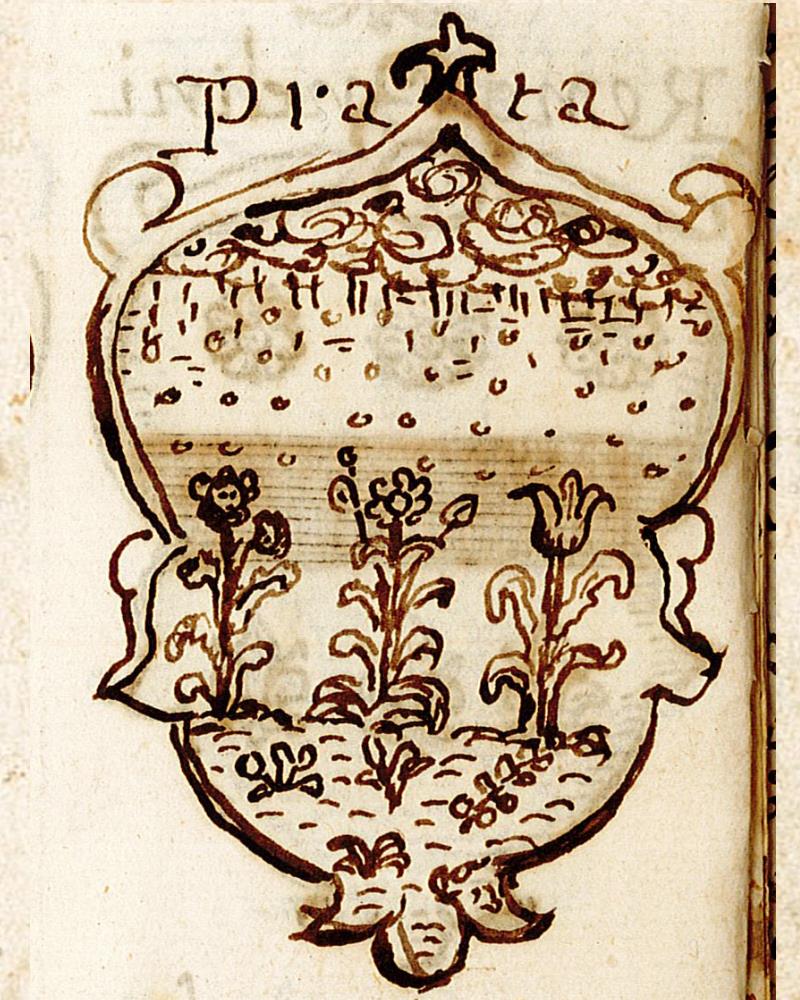 pra ta